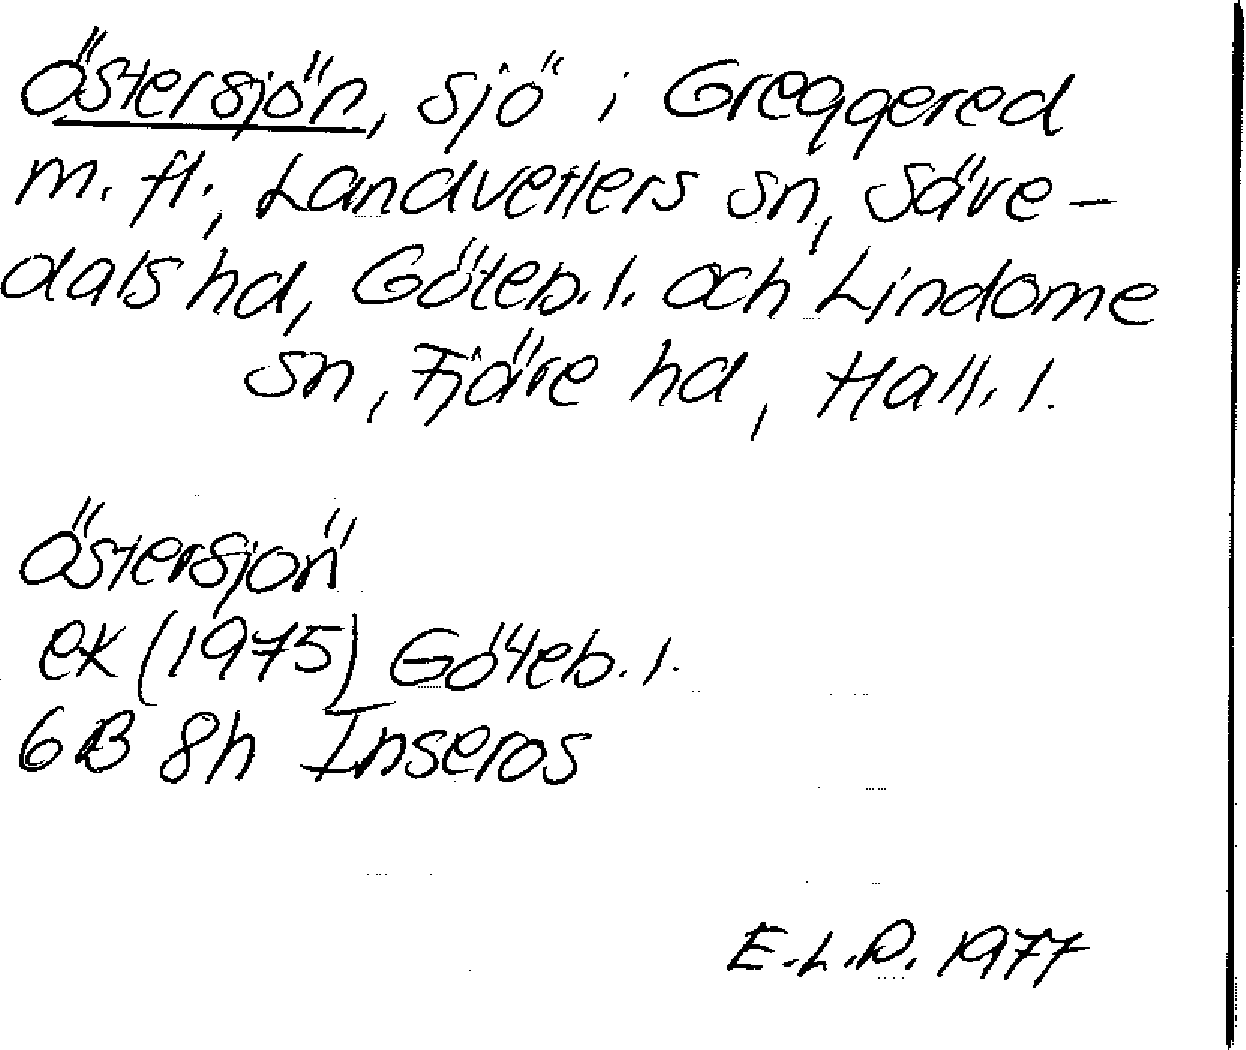 Östersjön, sjö i Greggered
m. fl., Landvetters sn, Säve-
dals hd, Göteb. l. och Lindome
sn, Fjäre hd, Hall. l.
Östersjön
ek (1975) Göteb. l.
6B 8h Inseros
E.L.R. 1977